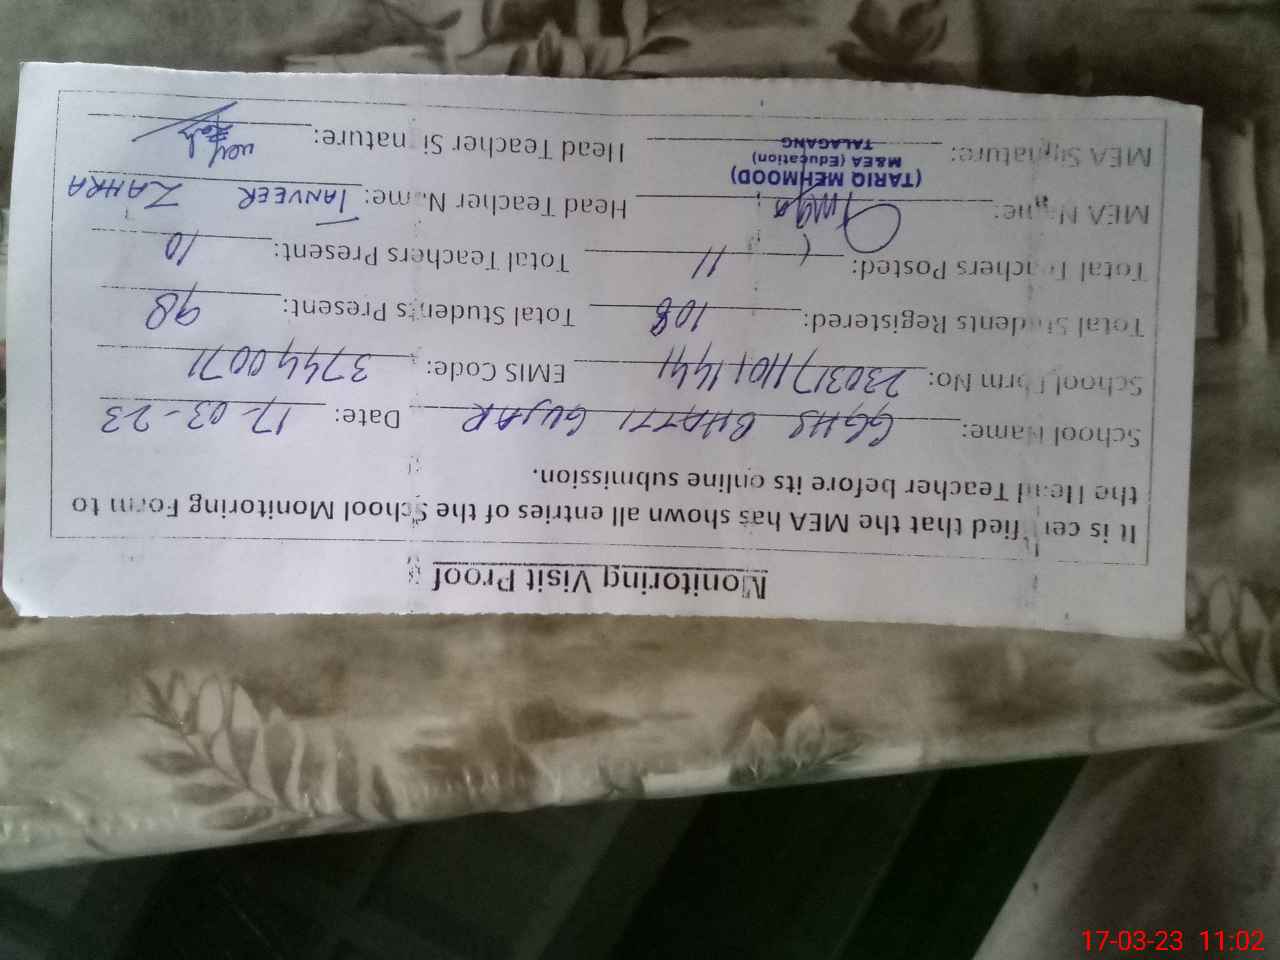 Monitoring Visit Proof
It is certified that the MEA has shown all entries of the School Monitoring Form to
the Head Teacher before its online submission.
School Name: GGHS BHATTI GUJAR Date: 17-03-23
School Form No: EMIS Code: 37440071
Total Students Registered: 108 Total Students Present: 98
Total Teachers Posted: 11 Total Teachers Present: 10
MEA Name: Head Teacher Name: TANVEER ZAHRA
(TARIQ MEHMOOD)
M&EA (Education)
TALAGANG
MEA Signature: Head Teacher Signature:
17-03-23 11:02